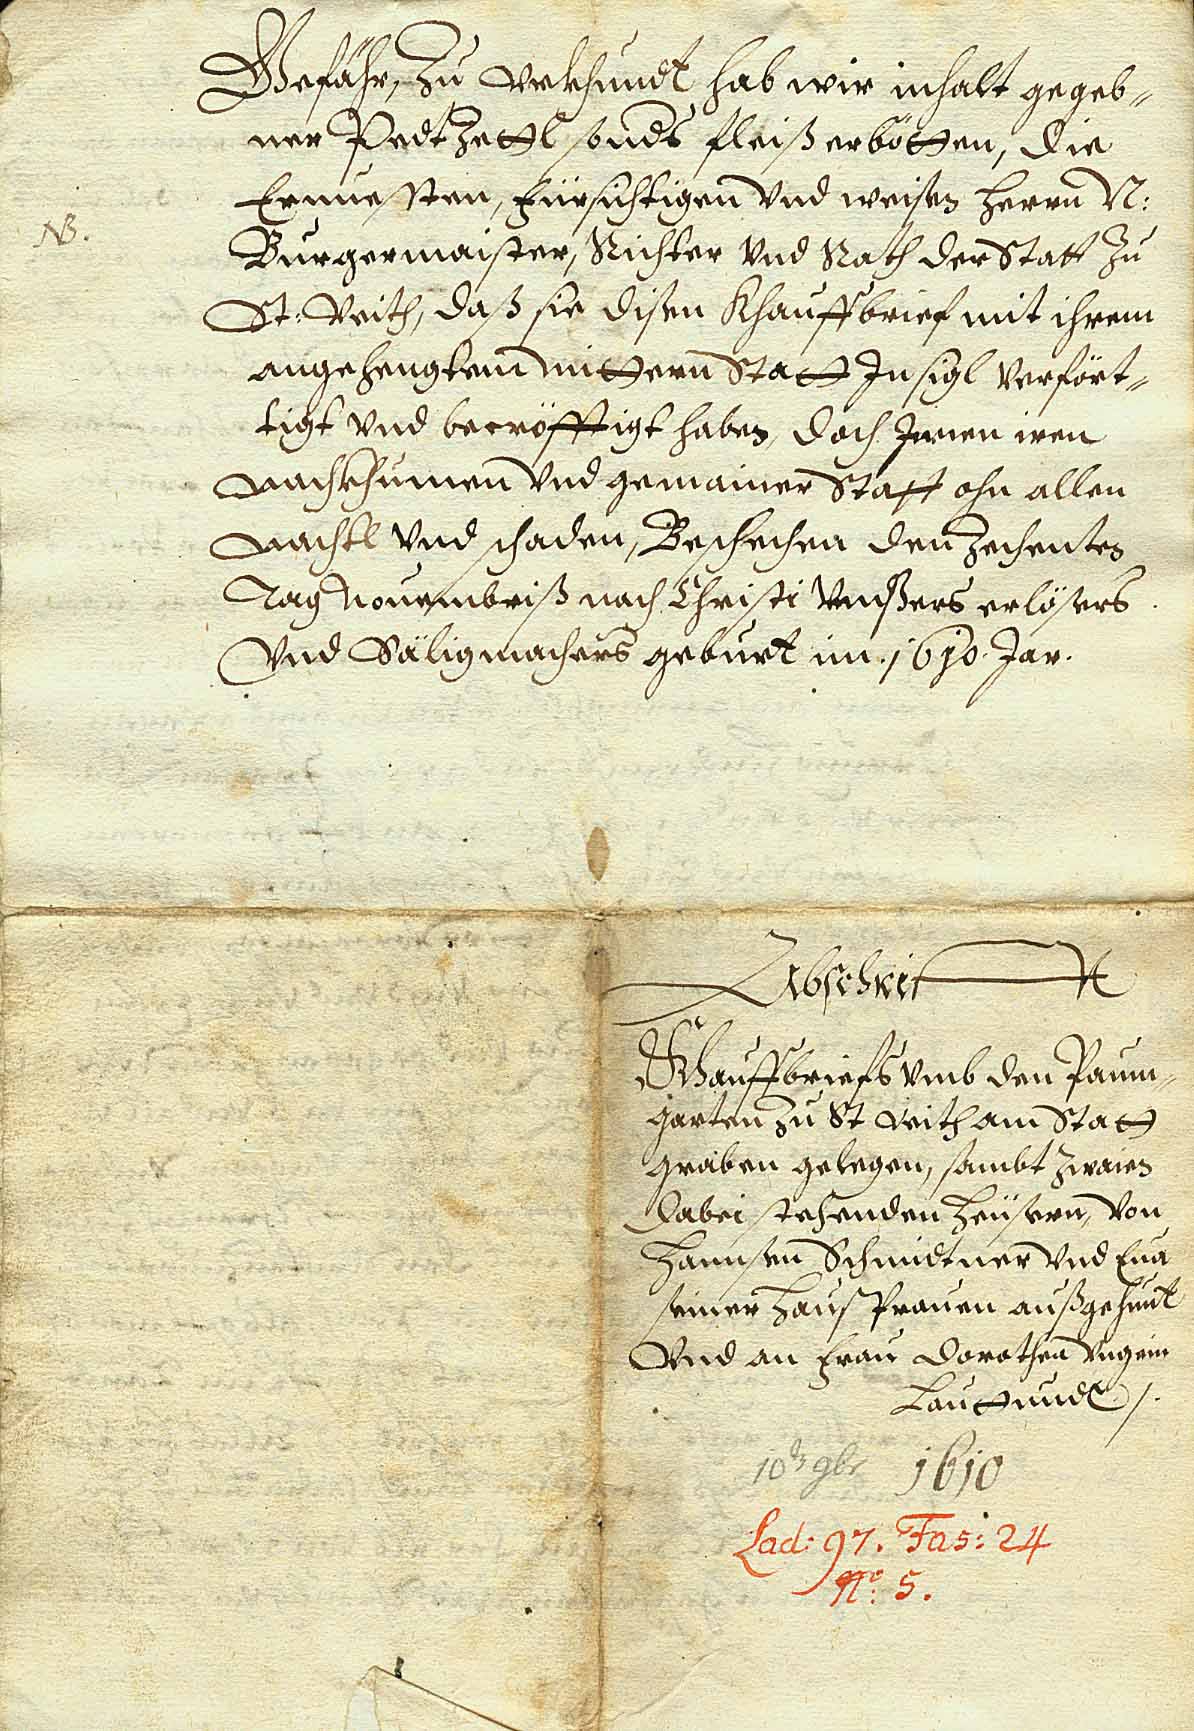 Gefähr, Zu Vrkhundt hab wir inhalt gegeb-
ner Pedt Zettl sonders fleiß erbötten, die
Ernuessten, Fürsichtigen Vnd weisen Herrn N:
NB.
Burgermaister, Richter Vnd Rath der Statt Zu
St: Veith, daß sie disen Khauffbrief mit ihrem
angehengktem mittern Statt Insigl Verfört-
tigt Vnd becröfftigt haben, doch Jnnen iren
Nachkhumen Vnd gemainer Statt ohn allen
Nachtl Vnd schaden, Beschechen den Zechenten
Tag Nouembriß nach Christi Vnßers erlösers
Vnd Säligmachers geburt im 1610. Jar.
Abschrifft
Khauffbriefs Vmb den Paum-
garten zu St Veith am Statt
graben gelegen, sambt Zwaien
dabei stehenden Heüsern, Von
Hannsen Schmidtner Vnd Eua
seiner Hausfrauen außgehunt
Vnd an Frau Dorothea Vngrin
Lauttundt /.
10 9br 1610
Lad: 97. Fas: 24
No: 5.